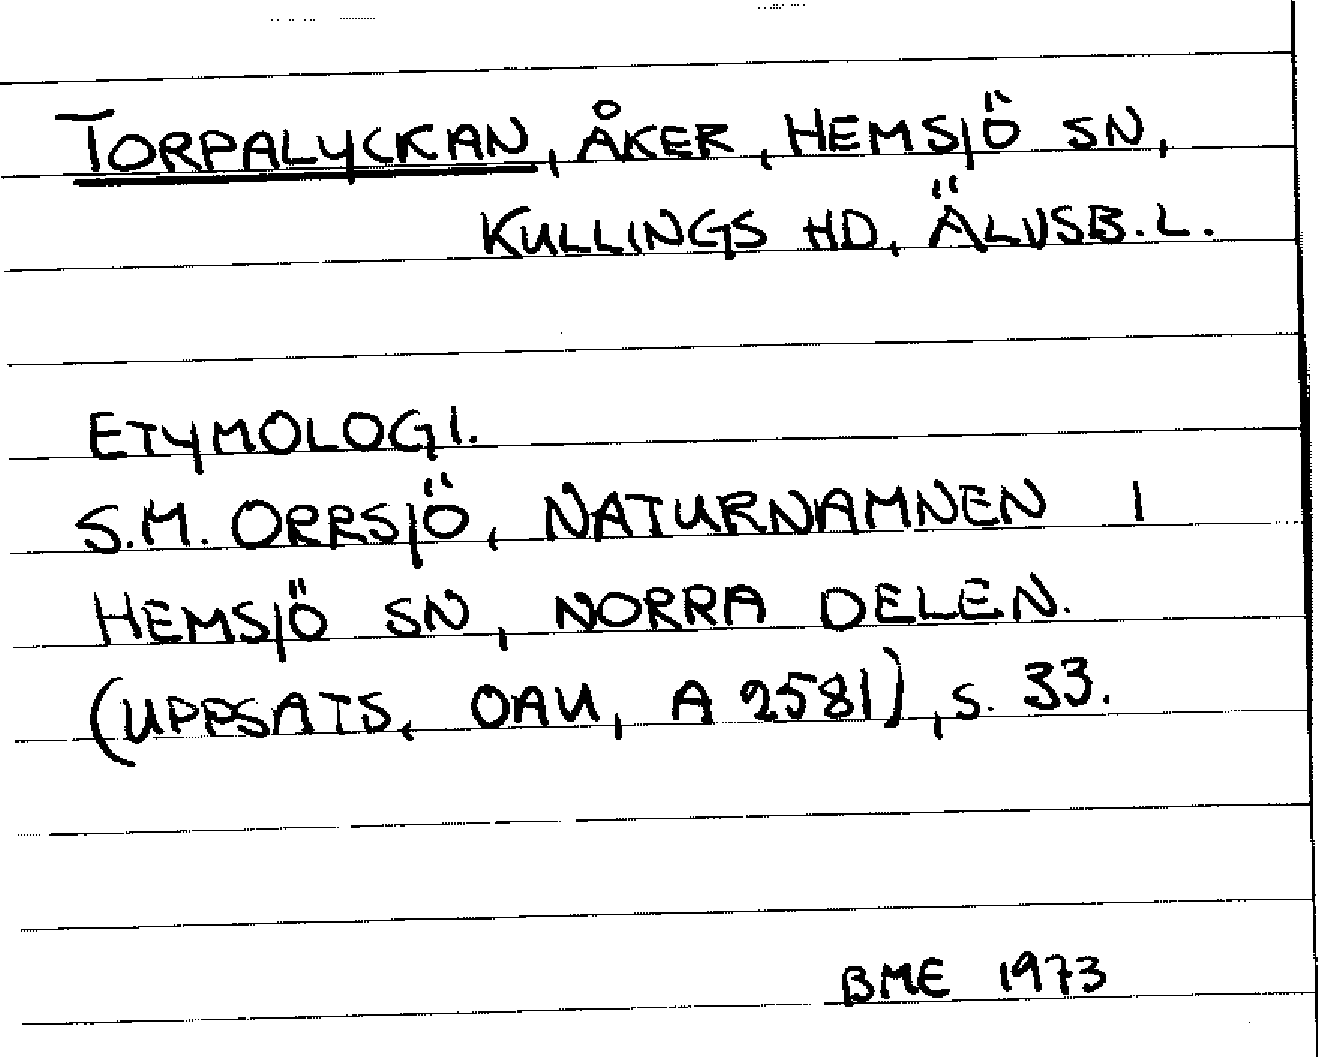 TORPALYCKAN, ÅKER, HEMSJÖ SN,
KULLINGS HD, ÄLVSB.L.
ETYMOLOGI.
S.M. ORRSJÖ, NATURNAMNEN I
HEMSJÖ SN, NORRA DELEN.
(UPPSATS, OAU, A 2581), S. 33.
BME 1973